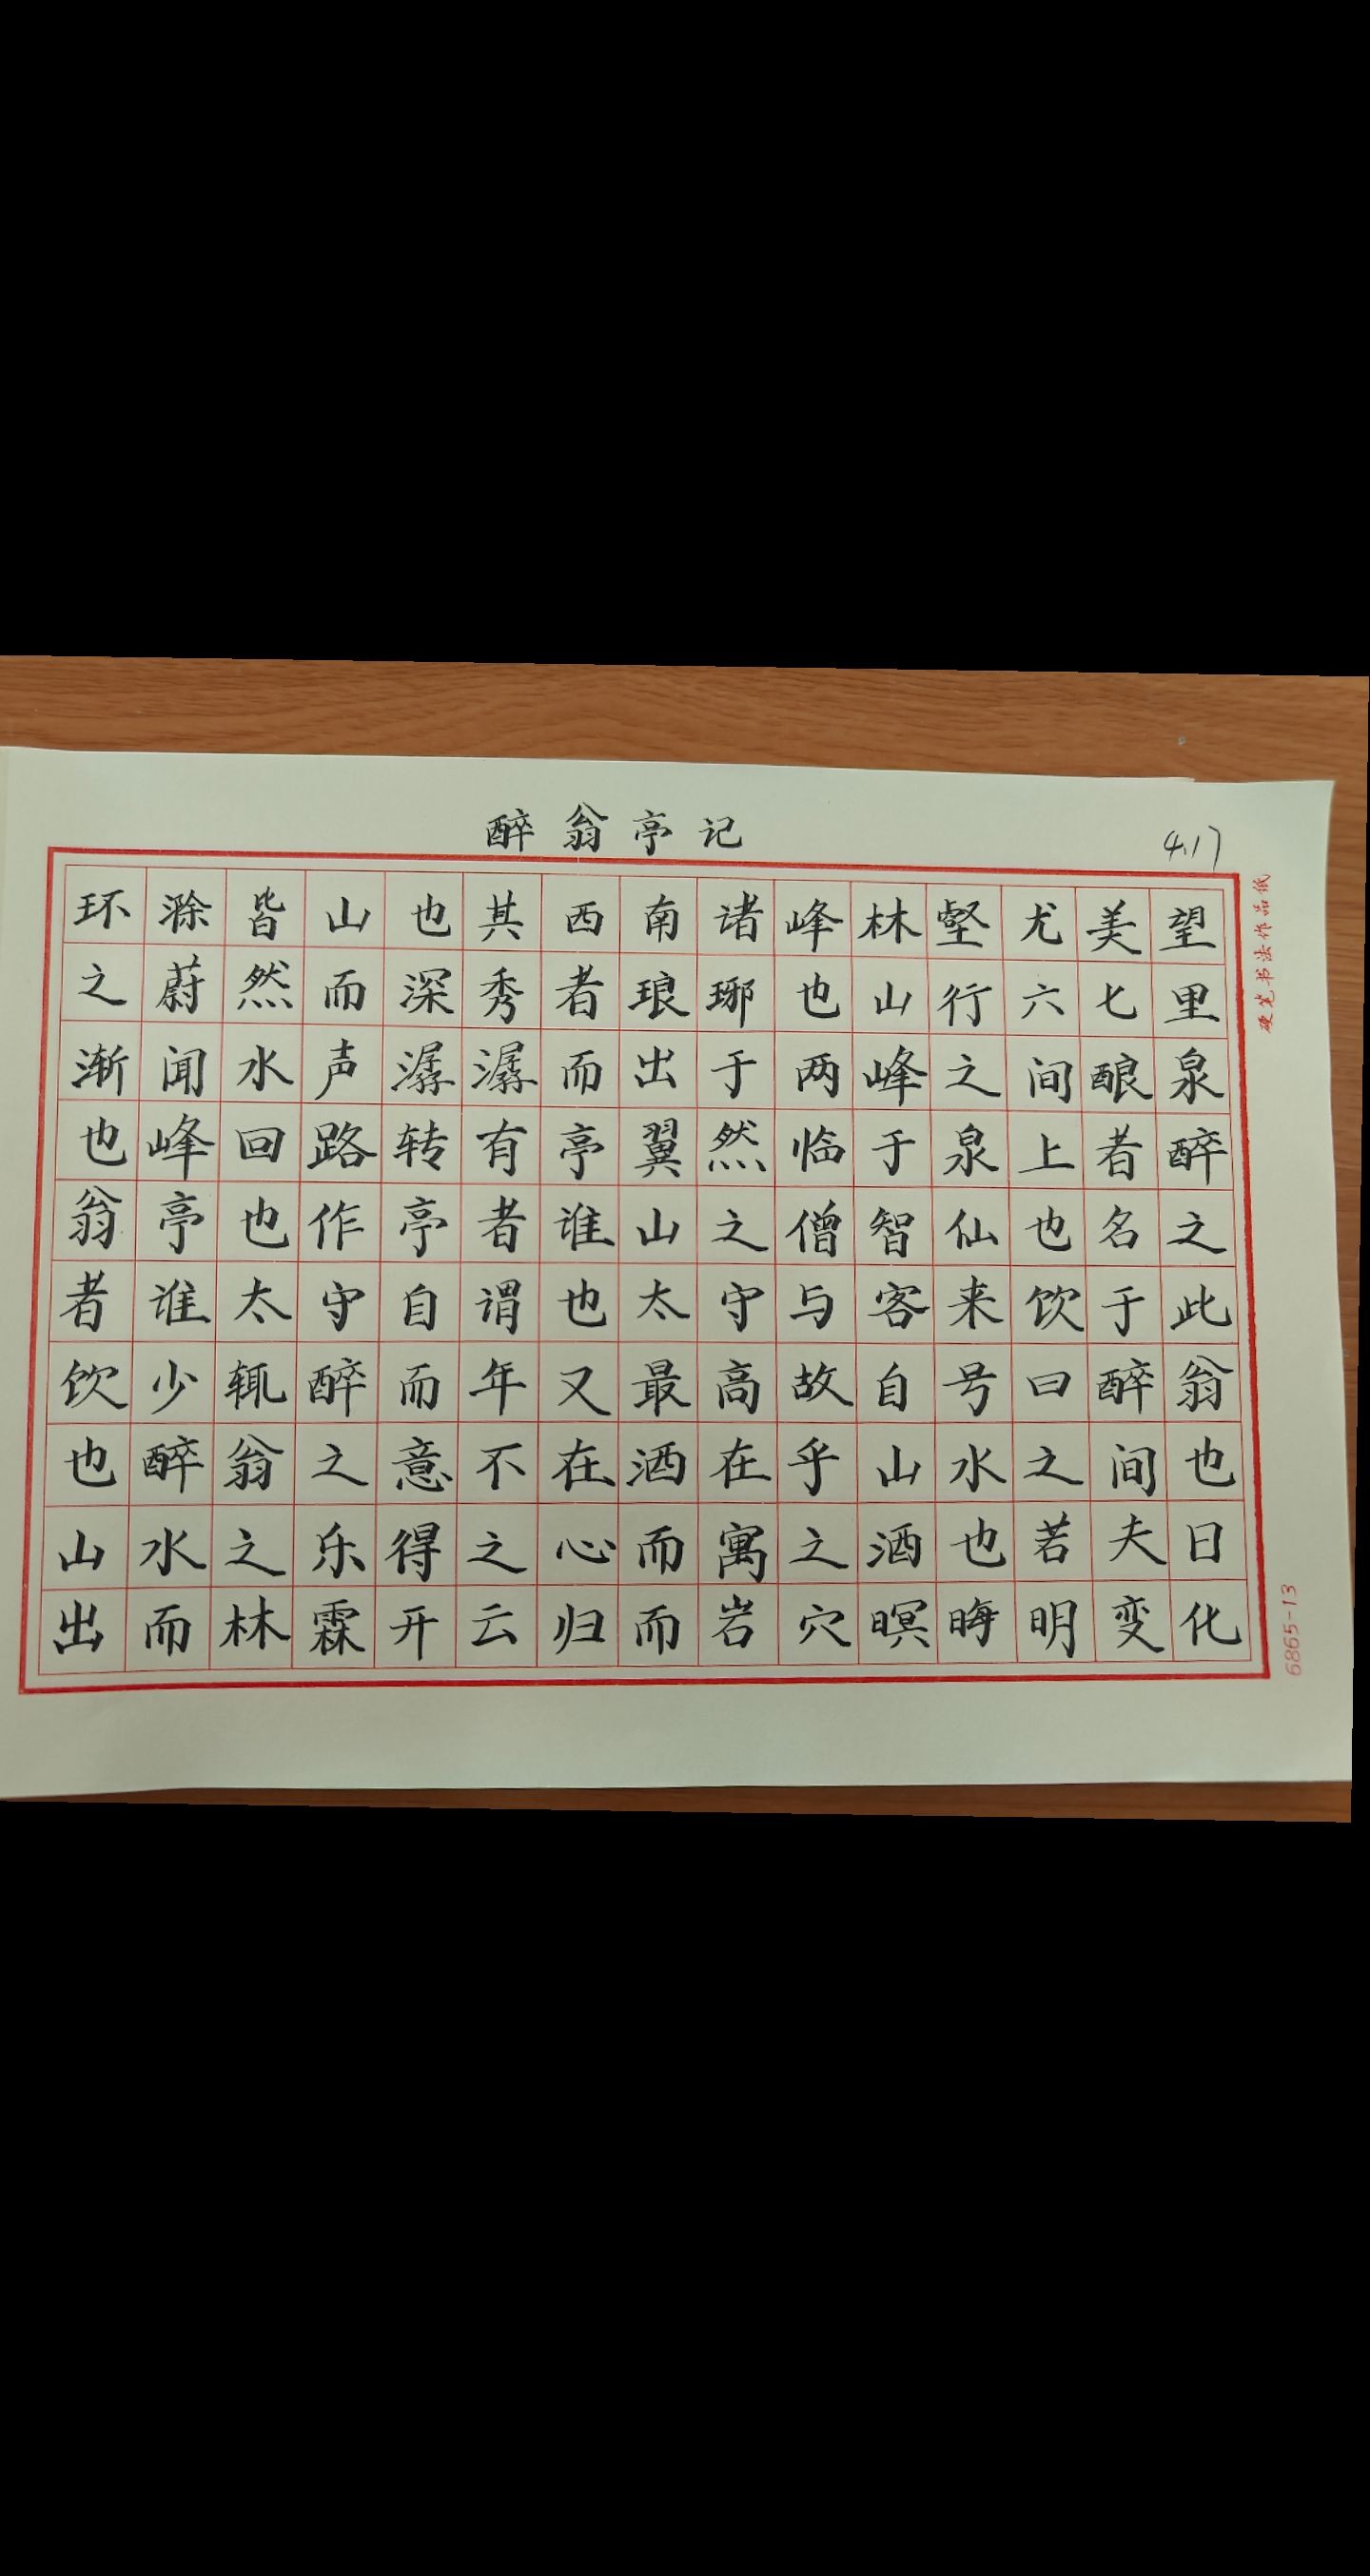 醉翁亭记
4.17
环滁皆山也其西南诸峰林壑尤美望
之蔚然而深秀者琅琊也山行六七里
渐闻水声潺潺而出于两峰之间酿泉
也峰回路转有亭翼然临于泉上者醉
翁亭也作亭者谁山之僧智仙也名之
者谁太守自谓也太守与客来饮于此
饮少辄醉而年又最高故自号曰醉翁
也醉翁之意不在酒在乎山水之间也
山水之乐得之心而寓之酒也若夫日
出而林霖开云归而岩穴暝晦明变化
硬笔书法作品纸
6865-13